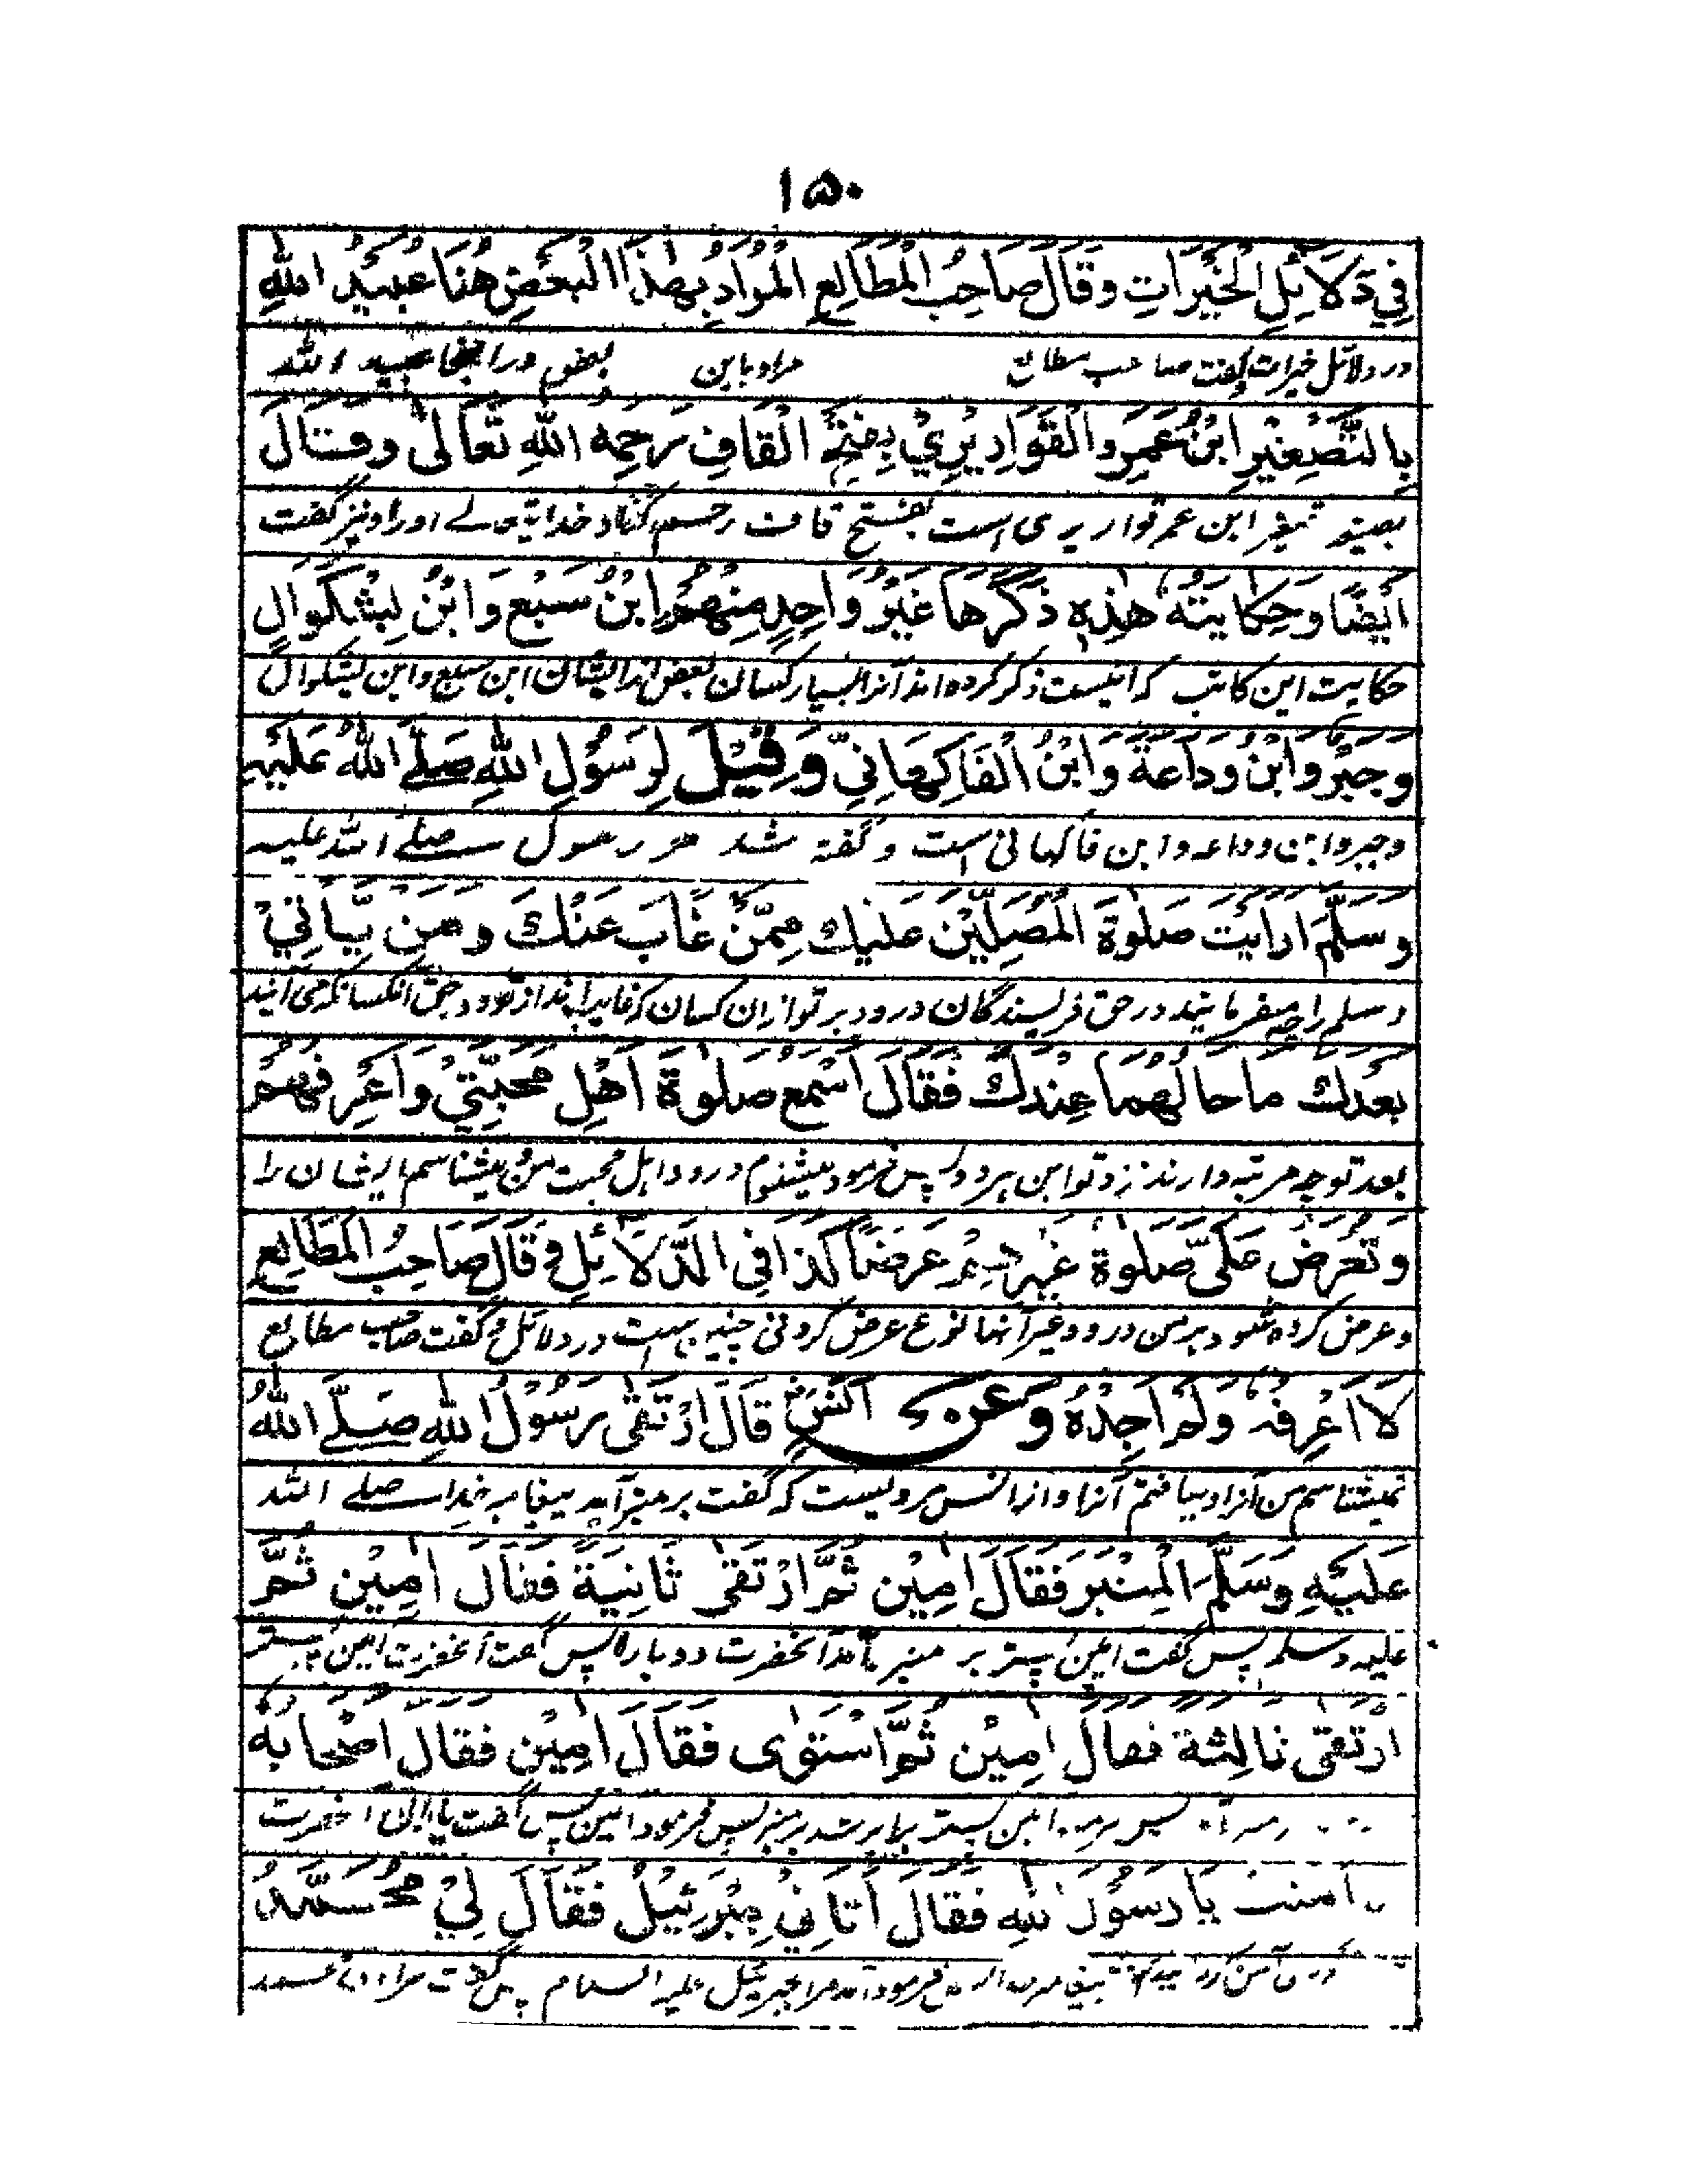 ۱۵۰
فِي دَلَائِلِ الْخَيْرَاتِ وَقَالَ صَاحِبُ الْمَطَالِعِ الْمُرَادُ بِهٰذَا الْبَعْضِ هُنَا عُبَيْدُ اللهِ
در دلائل خیرات و گفت صاحب مطالع مراد باین بعض در اینجا عبید الله
بِالتَّصْغِيْرِ ابْنُ عُمَرَ وَالْقَوَارِيْرِيْ بِفَتْحِ الْقَافِ رَحِمَهُ اللهِ تَعَالٰى وَقَالَ
بصیغه تصغیر ابن عمر قواریری است بفتح قاف رحم کناد خدایتعالے او را و نیز گفت
اَيْضًا وَحِكَايَتُهُ هٰذِهٖ ذَكَرَهَا غَيْرُ وَاحِدٍ مِنْهُمْ اِبْنُ سَبْعٍ وَابْنُ بِشْكُوَالٍ
حکایت این کاتب که اینست ذکر کرده اند آنرا بسیار کسان بعض از ایشان ابن سبع و ابن بشکوال
وَجَبْرُ وَابْنُ وَدَاعَةَ وَابْنُ الْفَاكِهَانِيِّ وَقِيْلَ لِرَسُوْلِ اللهِ صَلَّے اللهُ عَلَيْهِ
و جبر و ابن وداعه و ابن فاکهانی است و گفته شد مر رسول صلے الله علیه
وَسَلَّمَ اَرَاَيْتَ صَلٰوةَ الْمُصَلِّيْنَ عَلَيْكَ مِمَّنْ غَابَ عَنْكَ وَمَنْ يَّاْتِيْ
وسلم را چه میفرمایند در حق فرستندگان درود بر تو از ان کسان که غایب اند از تو و در حق آنکسانکه می آیند
بَعْدَكَ مَا حَالُهُمَا عِنْدَكَ فَقَالَ اَسْمَعُ صَلٰوةَ اَهْلِ مَحَبَّتِيْ وَاَعْرِفُهُمْ
بعد تو چه مرتبه دارند نزد تو این هر دو پس فرمود میشنوم درود اهل محبت من و میشناسم ایشان را
وَتُعْرَضُ عَلَىَّ صَلٰوةُ غَيْرِهِمْ عَرْضًا كَذَا فِى الدَّلَائِلِ وَ قَالَ صَاحِبُ الْمَطَالِعِ
و عرض کرده شود بر من درود غیر آنها نوع عرض کردنی چنین است در دلائل و گفت صاحب مطالع
لَا اَعْرِفُهُ وَلَمْ اَجِدْهُ وَعَنْ اَنَسٍ قَالَ ارْتَقٰى رَسُوْلُ اللهِ صَلَّے اللهُ
نمیشناسم من آنرا و نیافتم آنرا و از انس مرویست که گفت بر منبر آمد پیغامبر خدا صلے الله
عَلَيْهِ وَسَلَّمَ الْمِنْبَرَ فَقَالَ اٰمِيْن ثُمَّ ارْتَقٰى ثَانِيَةً فَقَالَ اٰمِيْن ثُمَّ
علیه وسلم پس گفت امین پستر بر منبر آمد آنحضرت دوباره پس گفت آنحضرت امین پستر
ارْتَقٰى ثَالِثَةً فَقَالَ اٰمِيْن ثُمَّ اسْتَوٰى فَقَالَ اٰمِيْن فَقَالَ اَصْحَابُهُ
پستر برابر شد بر منبر پس فرمود امین پس گفت یاران آنحضرت
اَمَّنْتَ يَا رَسُوْلَ اللهِ فَقَالَ اَتَانِيْ جِبْرَئِيْلُ فَقَالَ لِيْ مُحَمَّدُ
فرمود آمد مرا جبرئیل علیه السلام پس گفت مرا